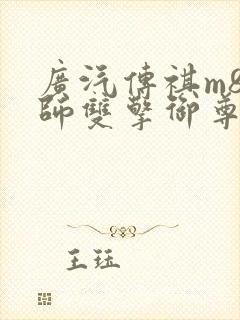 廣汽傳祺m8
師雙擎御尊
王珏